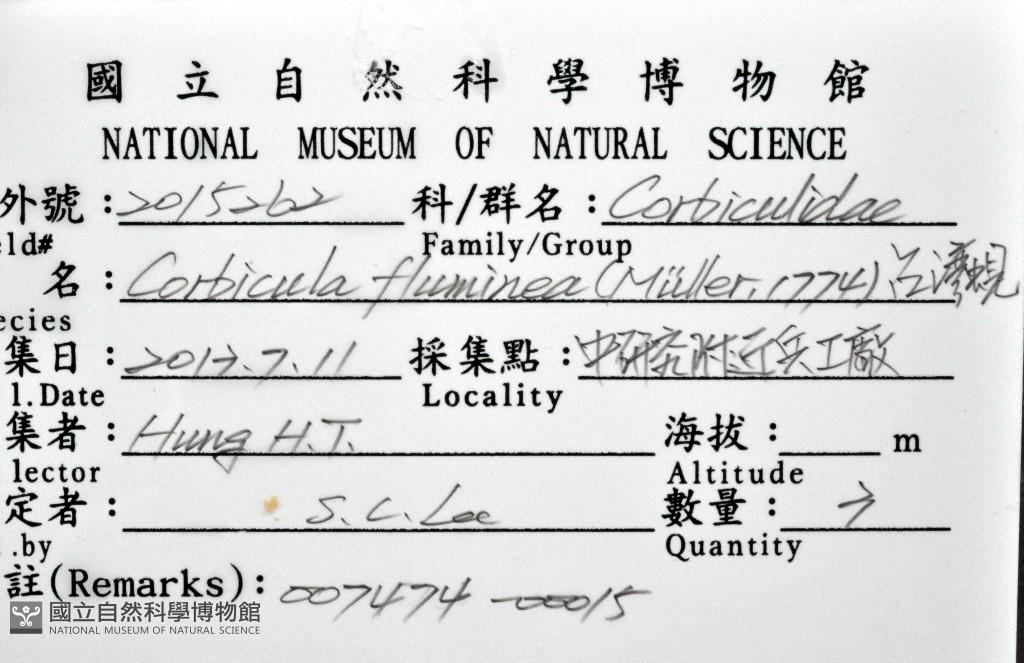 國立自然科學博物館
NATIONAL MUSEUM OF NATURAL SCIENCE
外號:2015262 科/群名:Corbiculidae
eld# Family/Group
名:Corbicula fluminea (Müller, 1774) 台灣蜆
ecies
集日:2013.7.11 採集點:中研究附近兵工廠
l.Date Locality
集者:Hung H.T. 海拔: m
lector Altitude
定者: S.C. Lee 數量:
.by Quantity
註(Remarks):007474-00015
國立自然科學博物館
NATIONAL MUSEUM OF NATURAL SCIENCE